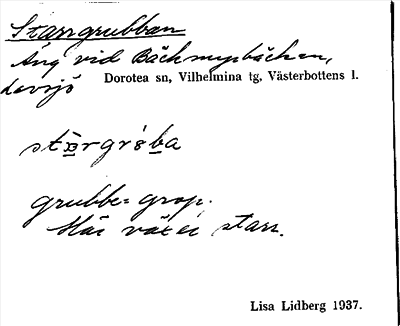 Starrgrubban
Äng vid Bäckmyrbäcken,
Lavsjö Dorotea sn, Vilhelmina tg, Västerbottens l.
grubbe = grop.
Här växer starr.
Lisa Lidberg 1937.